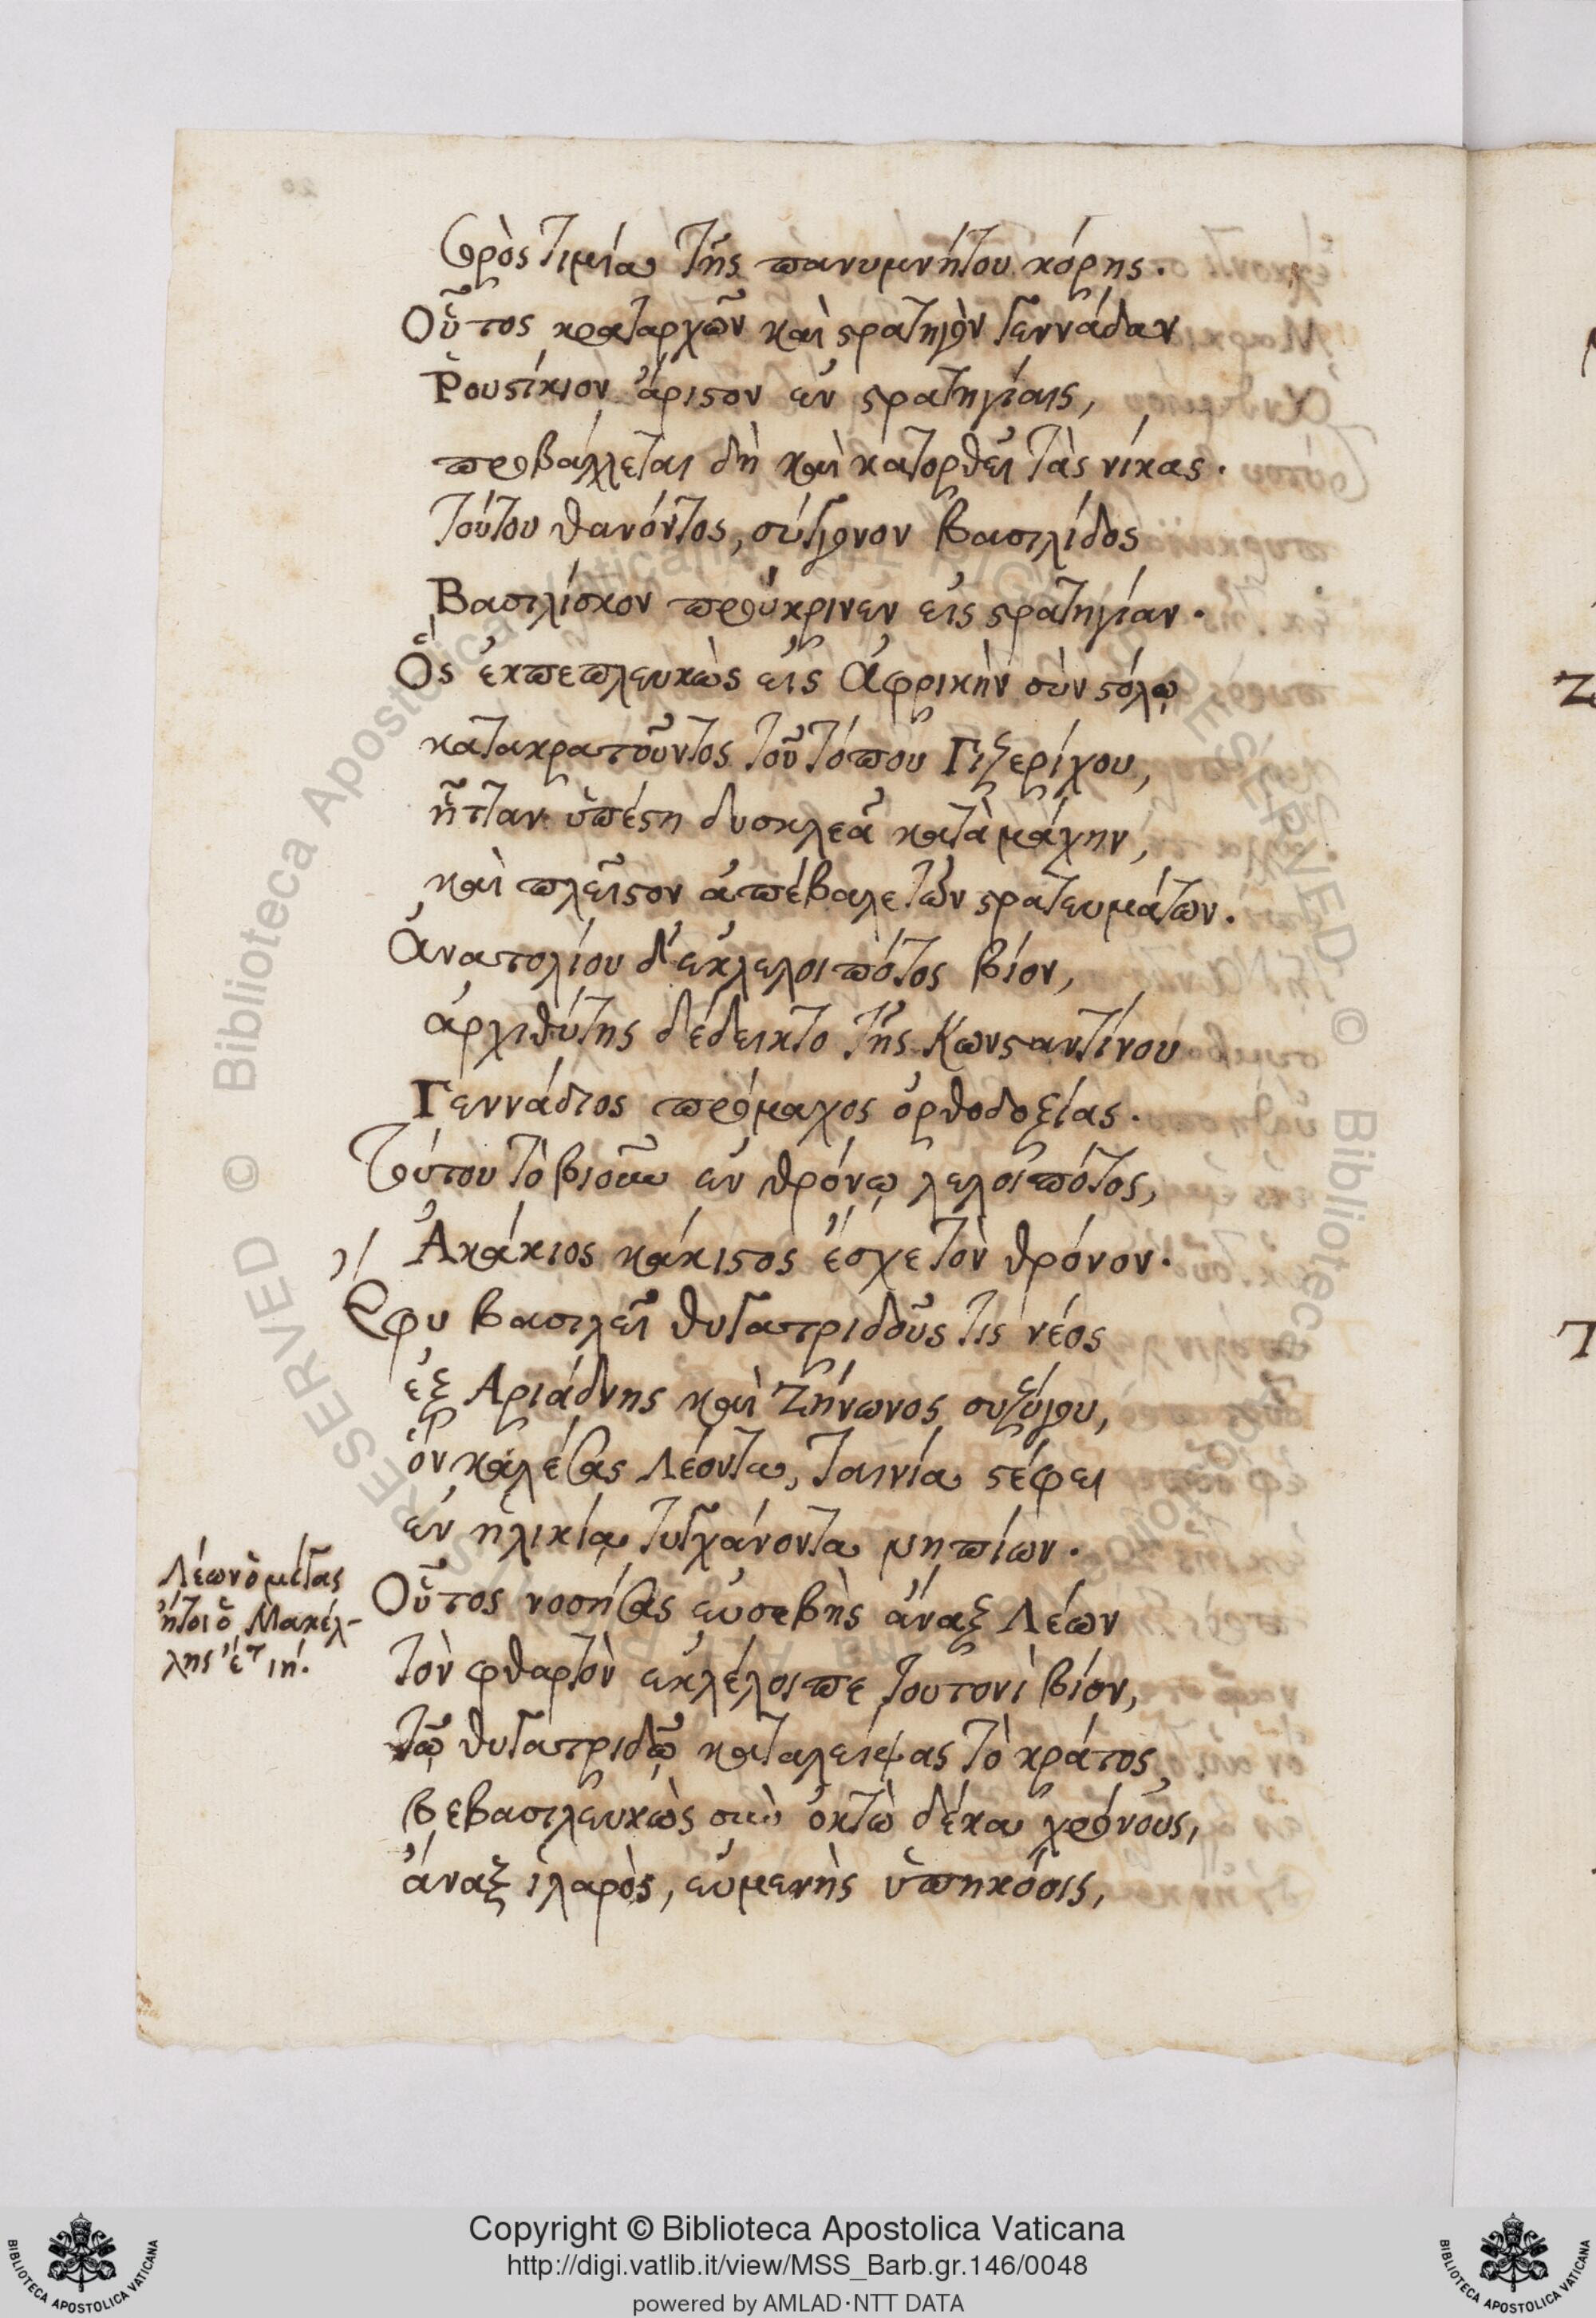 πρὸς τιμία τῆς πανυμνήτου κόρης.
Οὗτος κραταρχῶν καὶ στρατηγὸν Γεννάδαν
Ῥουστίκιον ἄριστον ἐν στρατηγίαις,
προβάλλεται δὴ καὶ κατορθεῖ τὰς νίκας.
τούτου θανόντος, σύγγονον βασιλίδος
Βασιλίσκον προύκρινεν εἰς στρατηγίαν.
Ὃς ἐκπεπλευκὼς εἰς Ἀφρικὴν σὺν στόλῳ
κατακρατοῦντος τοῦ τόπου Γιζερίχου,
ἧτταν ὑπέστη δυσκλεᾶ κατὰ μάχην,
καὶ πλεῖστον ἀπέβαλε τῶν στρατευμάτων.
Ἀνατολίου δ' ἐκλελοιπότος βίον,
ἀρχιθύτης δέδεικτο τῆς Κωνσταντίνου
Γεννάδιος πρόμαχος ὀρθοδοξίας.
Τούτου τὸ βιοῦν ἐν θρόνῳ λελοιπότος,
Ἀκάκιος κάκιστος ἔσχε τὸν θρόνον.
Ἔφυ βασιλεῖ θυγατριδοῦς τις νέος
ἐξ Ἀριάδνης καὶ Ζήνωνος συζύγου,
ὃν καλέσας Λέοντα, ταινία στέφει
ἐν ἡλικίᾳ τυγχάνοντα νηπίων.
Λέων ὁ μέγας
ἤτοι ὁ Μακέλ-
λης ἔτ ιη.
Οὗτος νοσήσας εὐσεβὴς ἄναξ Λέων
τὸν φθαρτὸν ἐκλέλοιπε τουτονὶ βίον,
τῷ θυγατριδῷ καταλείψας τὸ κράτος,
βεβασιλευκὼς σὺν ὀκτὼ δέκα χρόνους,
ἄναξ ἱλαρὸς, εὐμενὴς ὑπηκόοις,
Copyright © Biblioteca Apostolica Vaticana
http://digi.vatlib.it/view/MSS_Barb.gr.146/0048
powered by AMLAD·NTT DATA